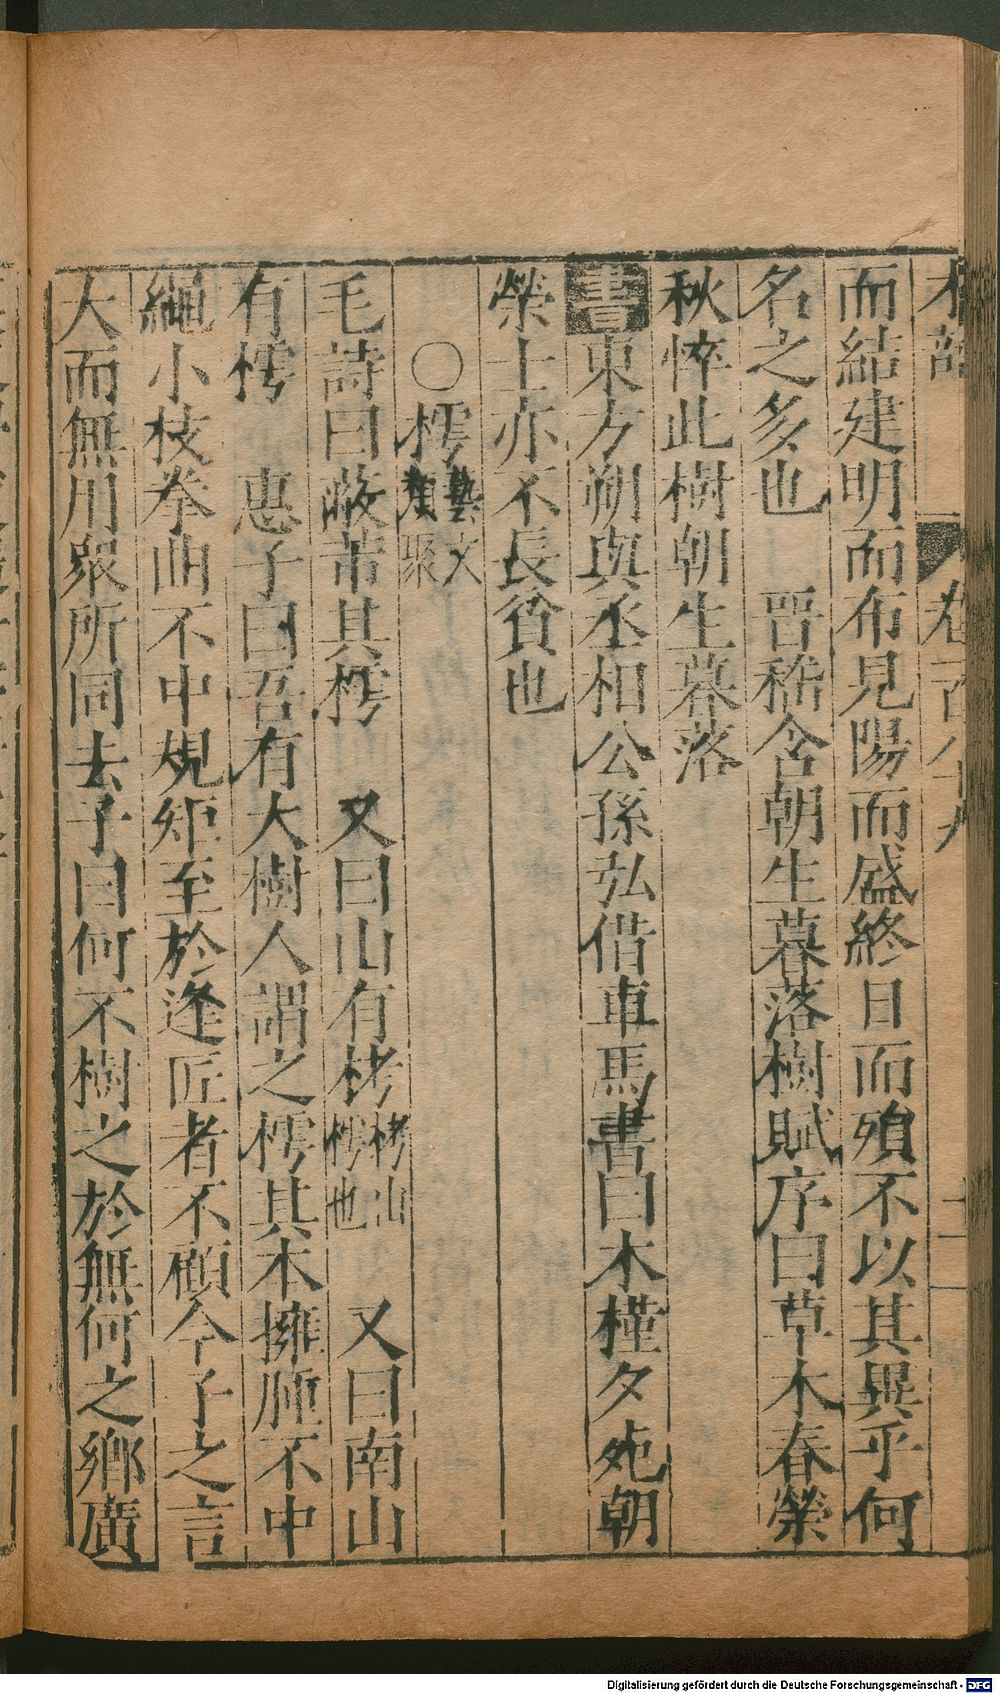 木部 卷一百八十九 十一
而結建明而布見陽而盛終日而殞不以其異乎何
名之多也 晉嵇含朝生暮落樹賦序曰草木春榮
秋悴此樹朝生暮落
書東方朔與丞相公孫弘借車馬書曰木槿夕死朝
榮士亦不長貧也
○樗藝文類聚
毛詩曰蔽芾其樗 又曰山有栲栲山樗也 又曰南山
有樗 惠子曰吾有大樹人謂之樗其本擁腫不中
繩小枝拳曲不中規矩至於逢匠者不顧今子之言
大而無用衆所同去子曰何不樹之於無何之鄉廣
Digitalisierung gefördert durch die Deutsche Forschungsgemeinschaft - DFG